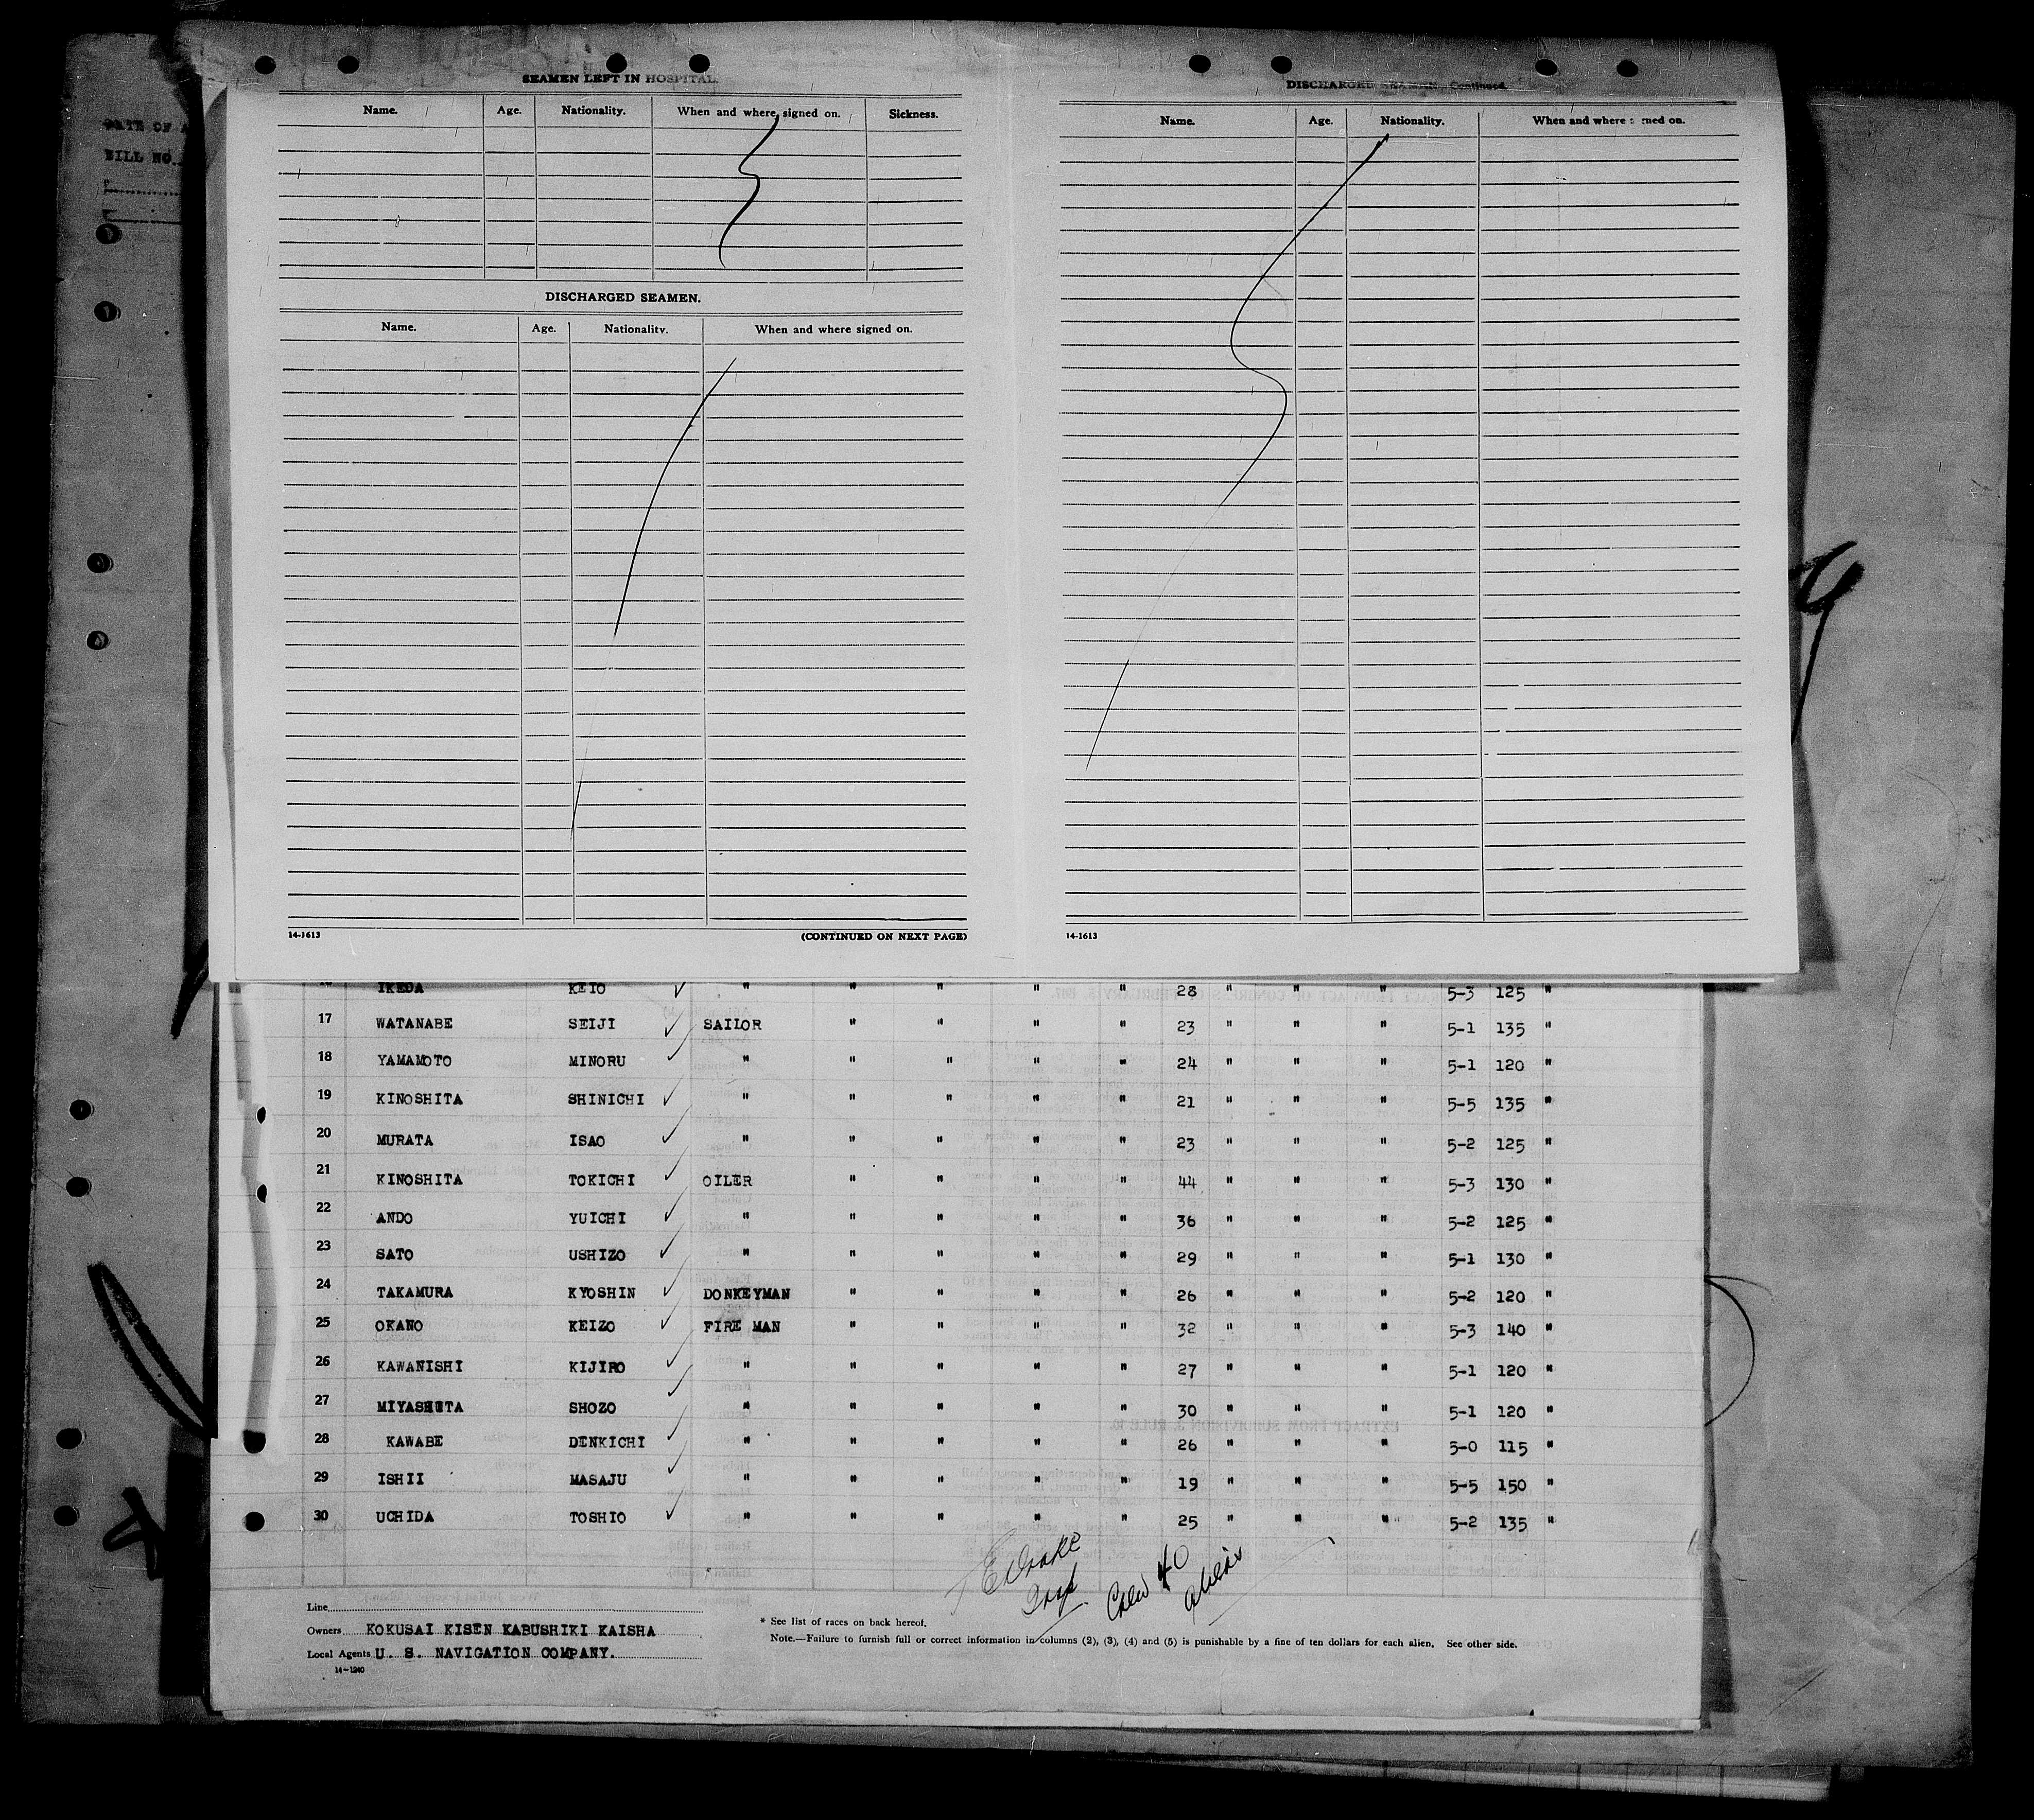 DATE OF
BILL NO.
SEAMEN LEFT IN HOSPITAL.
Name. Age. Nationality. When and where signed on. Sickness.
DISCHARGED SEAMEN.
Name. Age. Nationality. When and where signed on.
14-1613 (CONTINUED ON NEXT PAGE)
DISCHARGED SEAMEN. Continued.
Name. Age. Nationality. When and where signed on.
14-1613
IKEDA KEIO ✓ " " " " " 28 " " " 5-3 125 "
17 WATANABE SEIJI ✓ SAILOR " " " " 23 " " " 5-1 135 "
18 YAMAMOTO MINORU ✓ " " " " " 24 " " " 5-1 120 "
19 KINOSHITA SHINICHI ✓ " " " " " 21 " " " 5-5 135 "
20 MURATA ISAO ✓ " " " " " 23 " " " 5-2 125 "
21 KINOSHITA TOKICHI ✓ OILER " " " " 44 " " " 5-3 130 "
22 ANDO YUICHI ✓ " " " " " 36 " " " 5-2 125 "
23 SATO USHIZO ✓ " " " " " 29 " " " 5-1 130 "
24 TAKAMURA KYOSHIN ✓ DONKEYMAN " " " " 26 " " " 5-2 120 "
25 OKANO KEIZO ✓ FIRE MAN " " " " 32 " " " 5-3 140 "
26 KAWANISHI KIJIRO ✓ " " " " " 27 " " " 5-1 120 "
27 MIYASHITA SHOZO ✓ " " " " " 30 " " " 5-1 120 "
28 KAWABE DENKICHI ✓ " " " " " 26 " " " 5-0 115 "
29 ISHII MASAJU ✓ " " " " " 19 " " " 5-5 150 "
30 UCHIDA TOSHIO ✓ " " " " " 25 " " " 5-2 135 "
E Drake
Insp.
Crew 40
aliens
Line
Owners KOKUSAI KISEN KABUSHIKI KAISHA
Local Agents U. S. NAVIGATION COMPANY.
14-1240
* See list of races on back hereof.
Note.—Failure to furnish full or correct information in columns (2), (3), (4) and (5) is punishable by a fine of ten dollars for each alien. See other side.